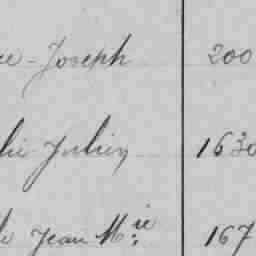 ce-Joseph 200
lie Julien 1630
le Jean Mie: 167